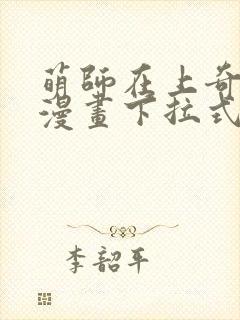 萌師在上奇
漫畫下拉式
李韶平